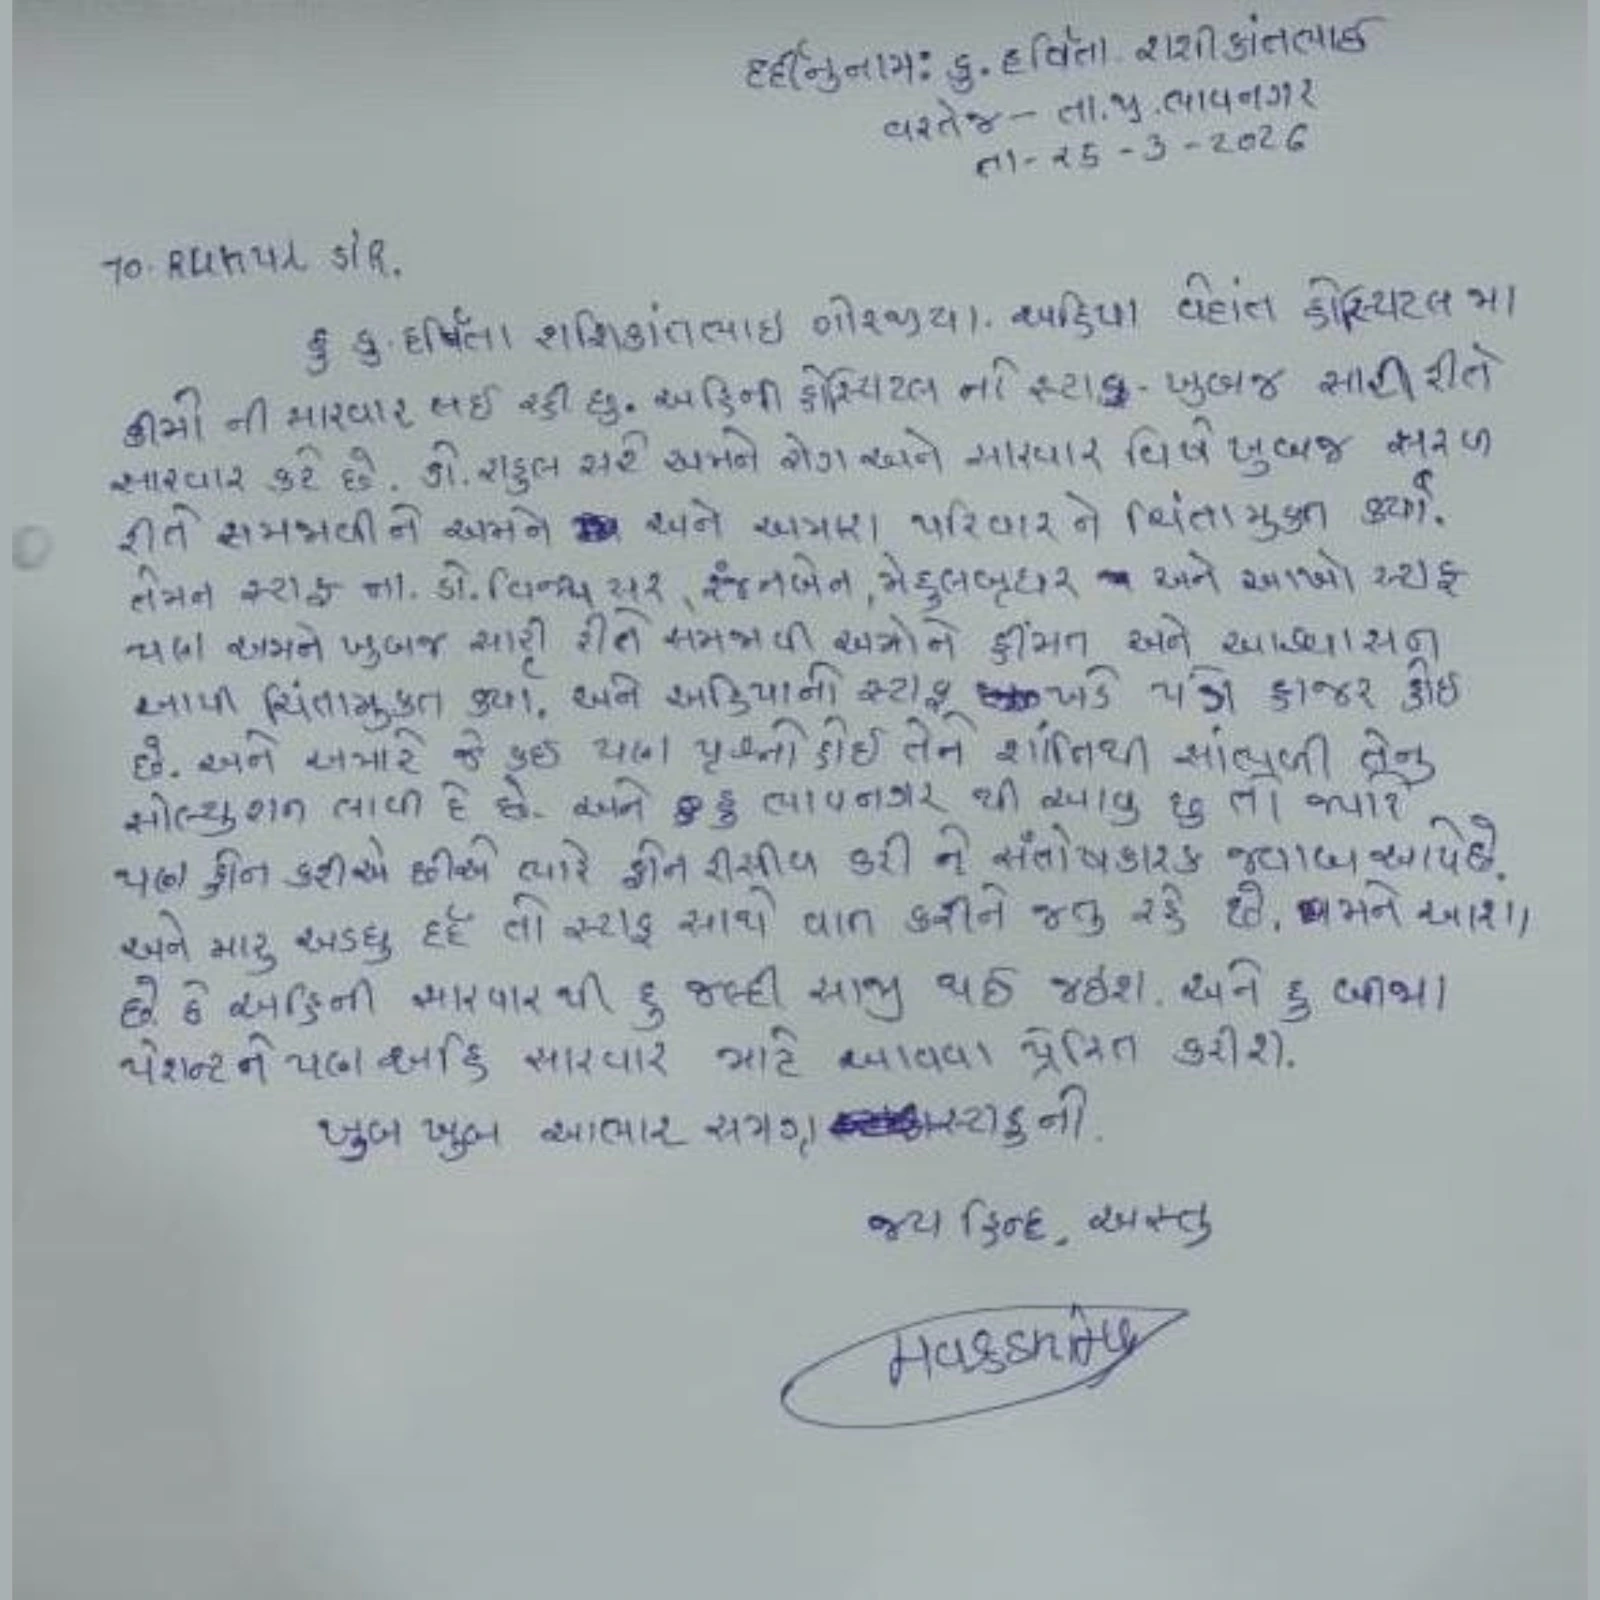 દર્દીનુનામ: કુ. હર્વિતા શશીકાંતભાઈ
વરતેજ - તા.જી.ભાવનગર
તા-૨૬-૩-૨૦૨6
TO.
હું કુ. હર્વિતા શશિકાંતભાઇ ગોરજીયા. અહિયા વેદાંત હોસ્પિટલ મા
કીમો ની સારવાર લઈ રહી છુ. અહિની હોસ્પિટલ નો સ્ટાફ ખુબજ સારી રીતે
સારવાર કરે છે. ડો. રાહુલ સરે અમને રોગ અને સારવાર વિષે ખુબજ સરળ
રીતે સમજાવીને અમને અને અમારા પરિવાર ને ચિંતામુક્ત કર્યા.
તેમન સ્ટાફ ના. ડો. વિનય સર, રંજનબેન, મેહુલબ્રધર અને આખો સ્ટાફ
પણ અમને ખુબજ સારી રીતે સમજાવી અમોને હીંમત અને આશ્વાસન
આપી ચિંતામુક્ત કર્યા. અને અહિયાનો સ્ટાફ ખડે પગે હાજર હોઇ
છે. અને અમારે જે કઇ પણ પ્રશ્નો હોઈ તેને શાંતિથી સાંભળી તેનુ
સોલ્યુશન લાવી દે છે. અને હુ ભાવનગર થી આવુ છુ તો જ્યારે
પણ ફોન કરીએ છીએ ત્યારે ફોન રીસીવ કરી ને સંતોષકારક જવાબ આપેછે.
અને મારુ અડધુ દર્દ તો સ્ટાફ સાથે વાત કરીને જતુ રહે છે. અમને આશા
છે કે અહિની સારવારથી હુ જલ્દી સાજી થઈ જઇશ. અને હુ બીજા
પેશન્ટ ને પણ અહિ સારવાર માટે આવવા પ્રેરિત કરીશ.
ખુબ ખુબ આભાર સમગ્ર સ્ટાફનો.
જય હિન્દ. અસ્તુ